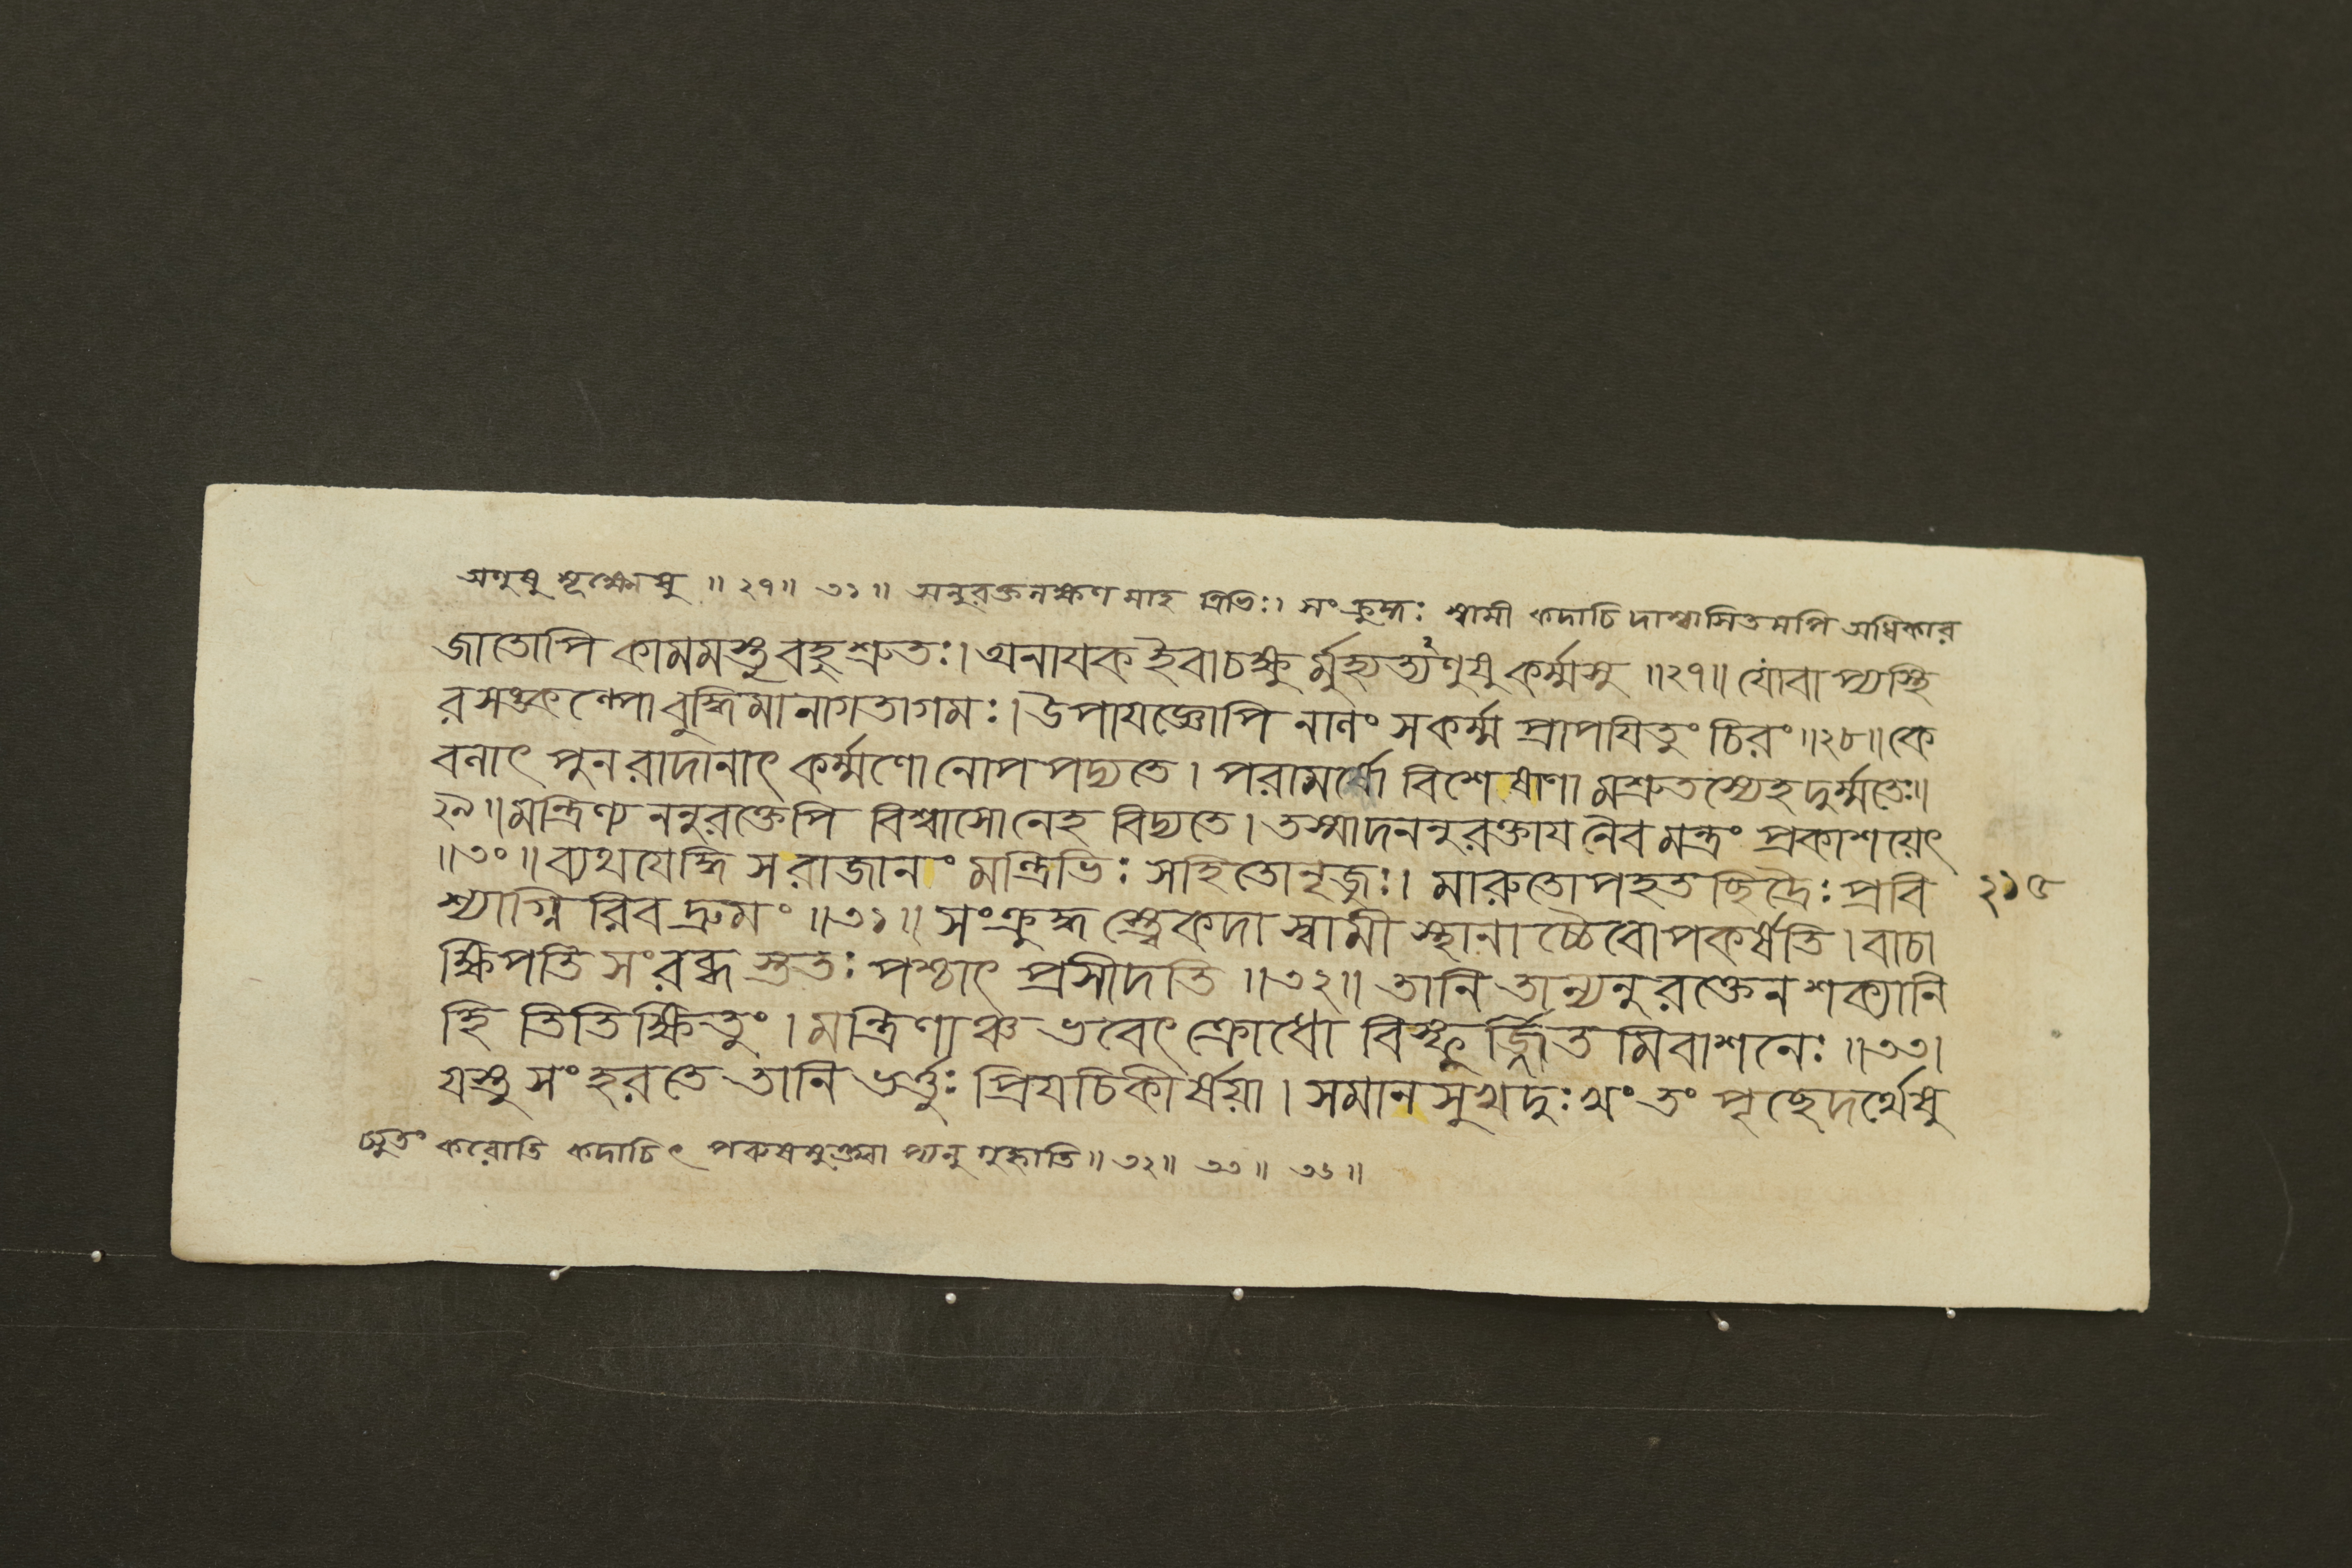 অণুষু সূক্ষ্মেষু ॥ ২৭॥ ৩১॥ অনুরক্তলক্ষণমাহ ত্রিভিঃ। সংক্রুদ্ধঃ স্বামী কদাচিদাশ্বাসিতমপি অধিকার
জাতোপি কামমস্তু বহুশ্রুতঃ। অনাযক ইবাচক্ষুর্মুহ্যত্যণুষু কর্ম্মসু ॥২৭॥ যো বাপ্যস্থি
রসঙ্কল্পো বুদ্ধিমানাগতাগমঃ। উপাযজ্ঞোপি নালং স কর্ম্ম প্রাপযিতুং চিরং॥২৮॥ কে
বলাৎ পুনরাদানাৎ কর্ম্মণো নোপপদ্যতে। পরামর্ষো বিশেষাণামশ্রুতস্যেহ দুর্ম্মতেঃ॥
২৯॥ মন্ত্রিণ্যননুরক্তেপি বিশ্বাসো নেহ বিদ্যতে। তস্মাদননুরক্তায নৈব মন্ত্রং প্রকাশয়েৎ
॥৩০॥ ব্যথযেদ্ধি স রাজানং মন্ত্রিভিঃ সহিতোনৃজুঃ। মারুতোপহতছিদ্রৈঃ প্রবি ২১৫
শ্যাগ্নিরিব দ্রুমং ॥৩১॥ সংক্রুদ্ধস্ত্বেকদা স্বামী স্থানাচ্চৈবোপকর্ষতি। বাচা
ক্ষিপতি সংরব্ধস্ততঃ পশ্চাৎ প্রসীদতি ॥৩২॥ তানি তান্যনুরক্তেন শক্যানি
হি তিতিক্ষিতুং। মন্ত্রিণাঞ্চ ভবেৎ ক্রোধো বিস্ফূর্জ্জিতমিবাশনেঃ ॥৩৩।
যস্তু সংহরতে তানি ভর্ত্তুঃ প্রিযচিকীর্ষয়া। সমানসুখদুঃখং তং পৃচ্ছেদর্থেষু
চ্যুতং করোতি কদাচিৎ পরুষমুক্ত্বাপ্যনুগৃহ্ণাতি॥ ৩২॥ ৩৩॥ ৩৪॥